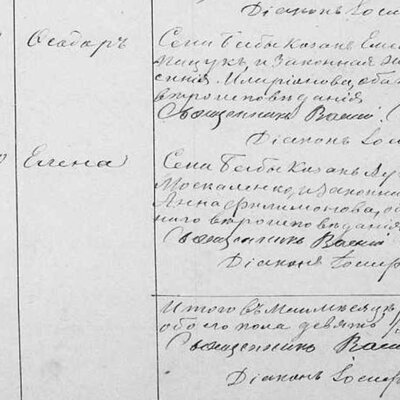 Діаконъ Іосиф
Ѳеодоръ
Села Бабы Казакъ Еме
Пацукъ и законная же
Иларіонова, оба
вѣроисповѣданія
Священникъ Васил
Діаконъ Іос
Елена
Села Бабы Казакъ Лу
Москаленко и законна
Анна Филимонова, о
наго вѣроисповѣданія
Священникъ Васи
Діаконъ Іосиф
Итого въ Маѣ мѣсяцѣ
обоего пола девять
Священникъ Васи
Діаконъ Іосиф